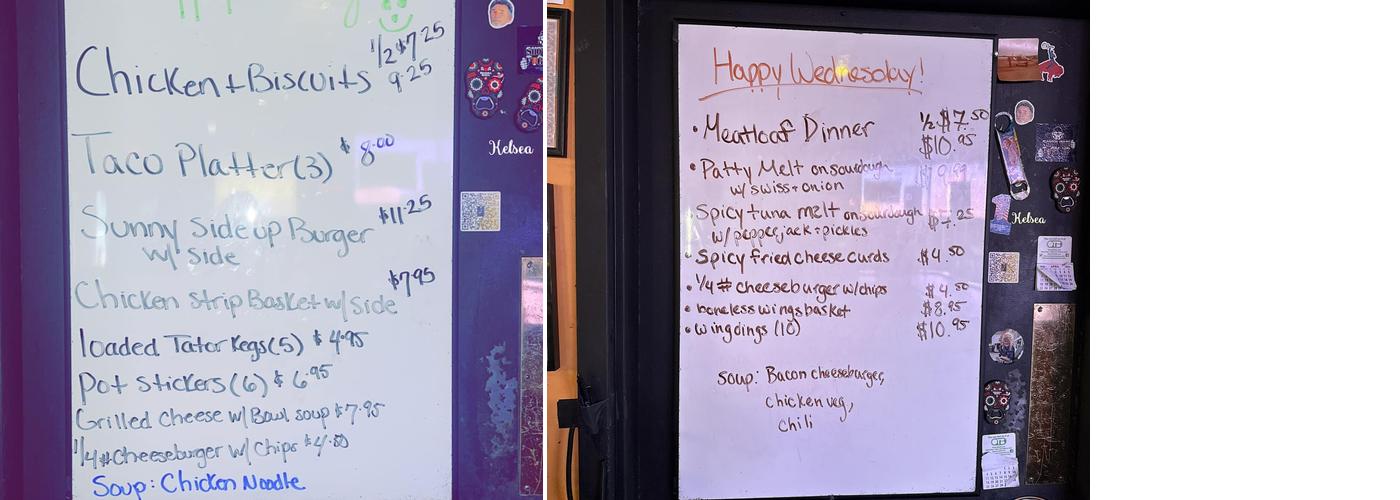 Chicken + Biscuits 1/2 $7.25
9.25
Taco Platter (3) $8.00
Sunny Side up Burger $11.25
w/ Side
Chicken Strip Basket w/ side $7.95
loaded Tator Kegs (5) $4.95
Pot Stickers (6) $6.95
Grilled Cheese w/ Bowl soup $7.95
1/4# Cheeseburger w/ Chips $4.50
Soup: Chicken Noodle
Kelsea
Happy Wednesday!
• Meatloaf Dinner 1/2 $7.50
$10.95
• Patty Melt on sourdough
w/ swiss + onion
• Spicy tuna melt on sourdough
w/ pepperjack + pickles
• Spicy fried cheese curds $4.50
• 1/4 # cheeseburger w/ chips $4.50
• boneless wings basket $8.95
• wingdings (10) $10.95
soup: Bacon cheeseburger,
chicken veg,
chili
Kelsea